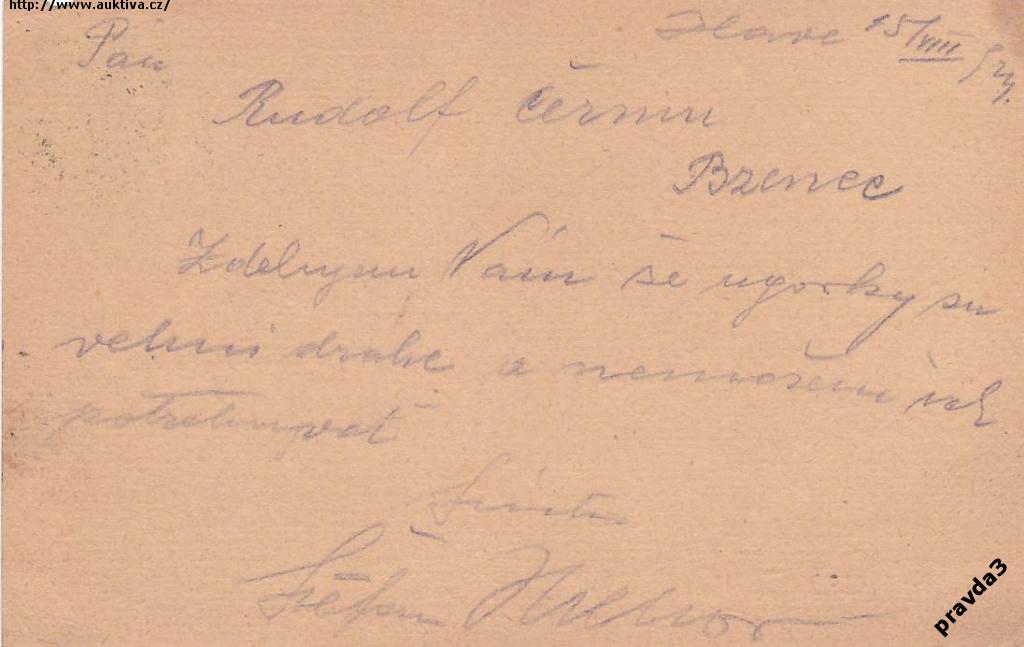 http://www.auktiva.cz/
Pán
15/VIII
Rudolf Černu
Bzenec
Zdelujem Vám še ugorky su
velmi drahe a nemožem ich
potrebuvat
Štefan
pravda3